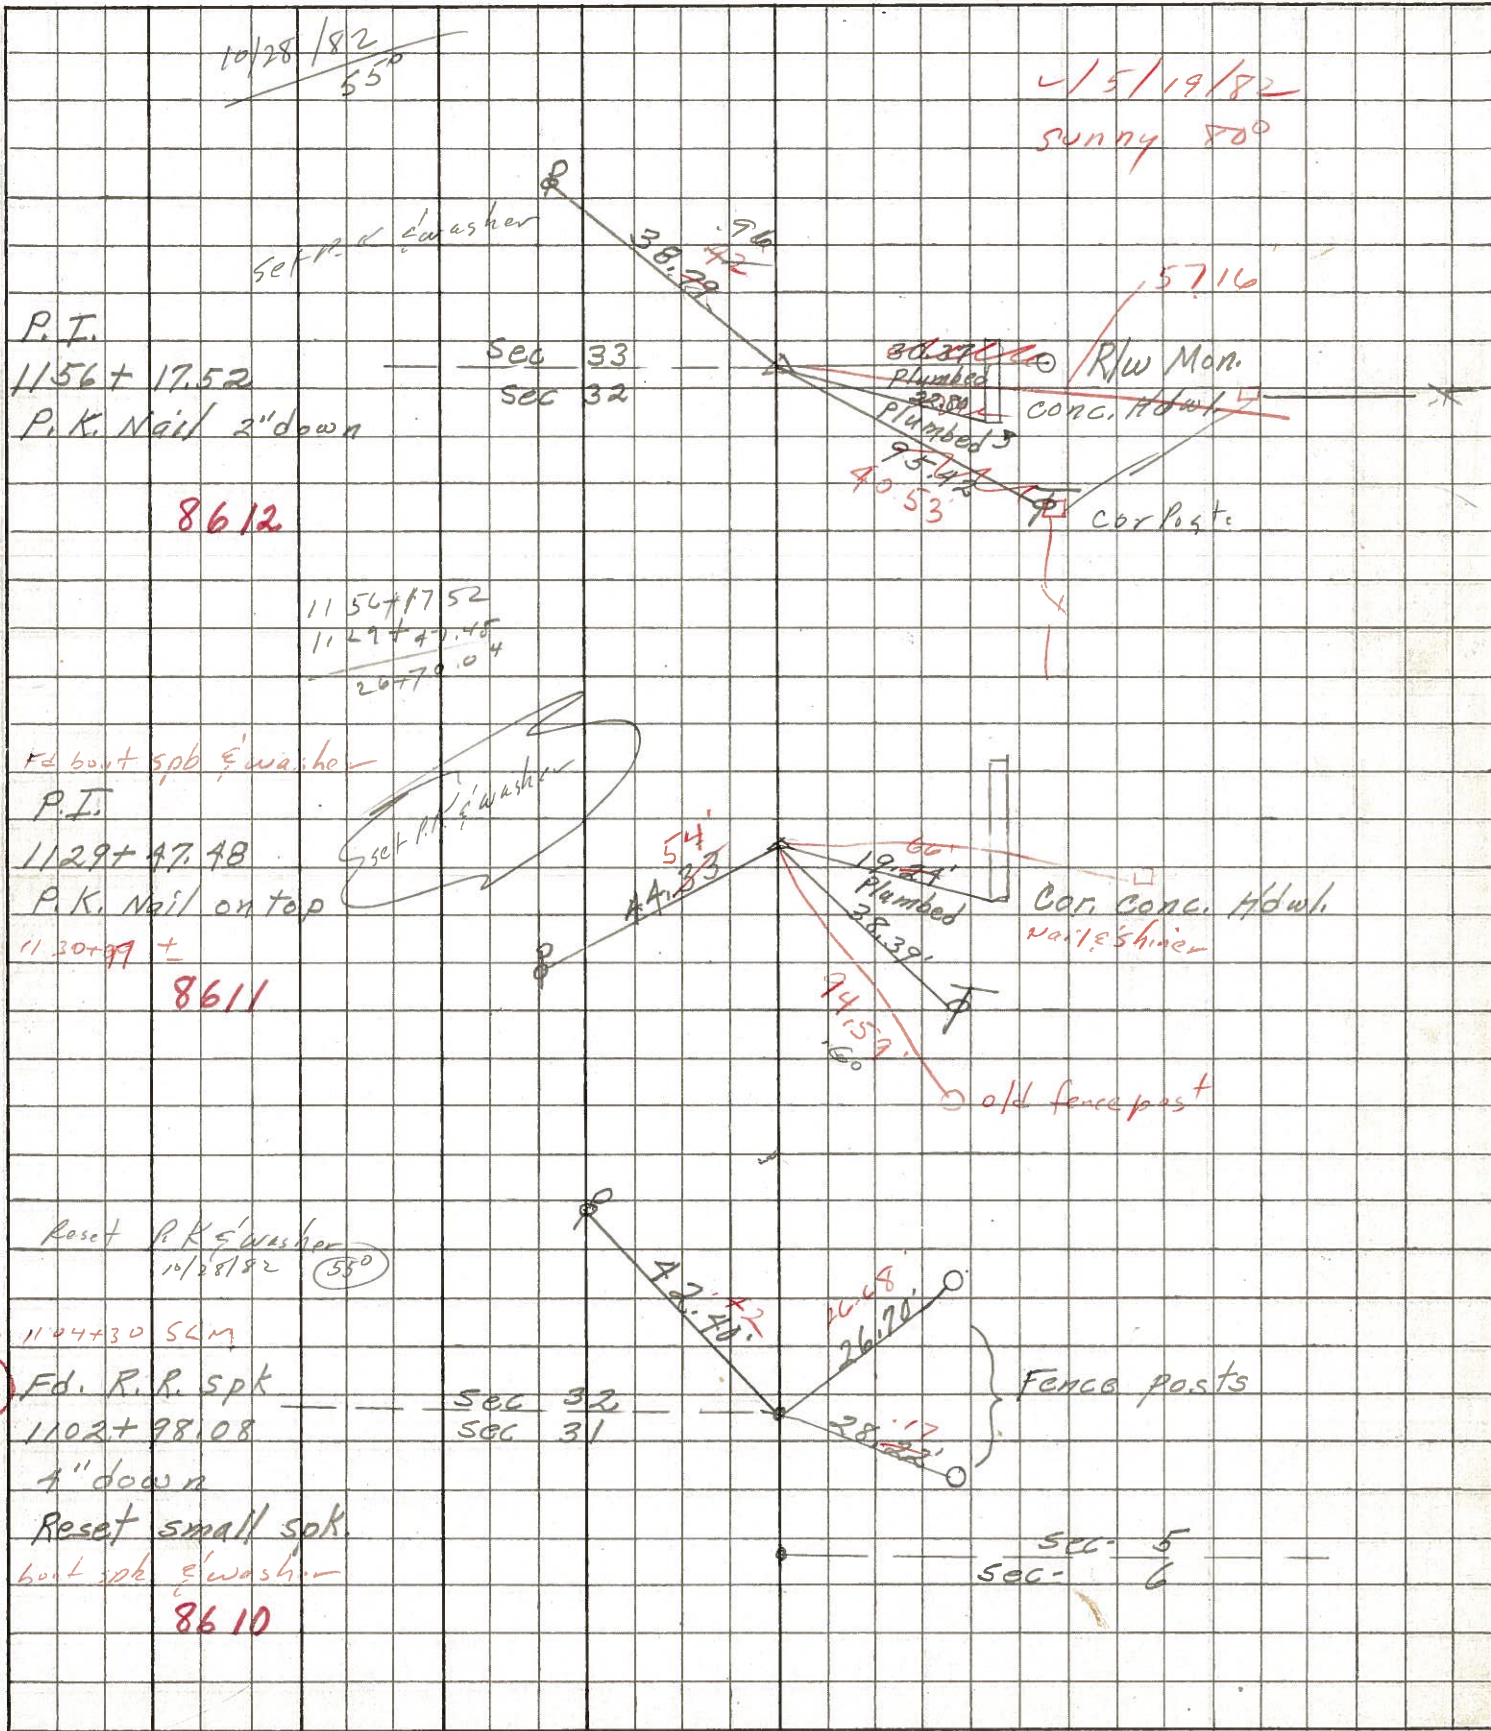 10/28/82
55°
✓ 5/19/82
sunny 80°
set P.K. & washer
38.79
.96
42
57.16
P.I.
1156 + 17.52
P.K. Nail 2" down
8612
Sec 33
Sec 32
30.37
Plumbed
Plumbed
95.42
40.53
R/W Mon.
conc. Hdwl.
Cor Post.
1156+17.52
1129+47.48
26+70.04
Fd boat spk & washer
P.I.
1129+47.48
P.K. Nail on top
1130+99 ±
8611
set P.K. & washer
54'
44.33
66'
19.24'
Plumbed
38.39'
94.59'
.60
Cor. conc. Hdwl.
Nail & shiner
old fence post
Reset P.K & washer
10/28/82 55°
1104+30 SLM
Fd. R.R. spk
1102+98.08
4" down
Reset small spk.
boat spk & washer
8610
Sec 32
Sec 31
42.40'
.42
26.68'
26.70'
28.22'
.17
Fence posts
Sec- 5
Sec- 6